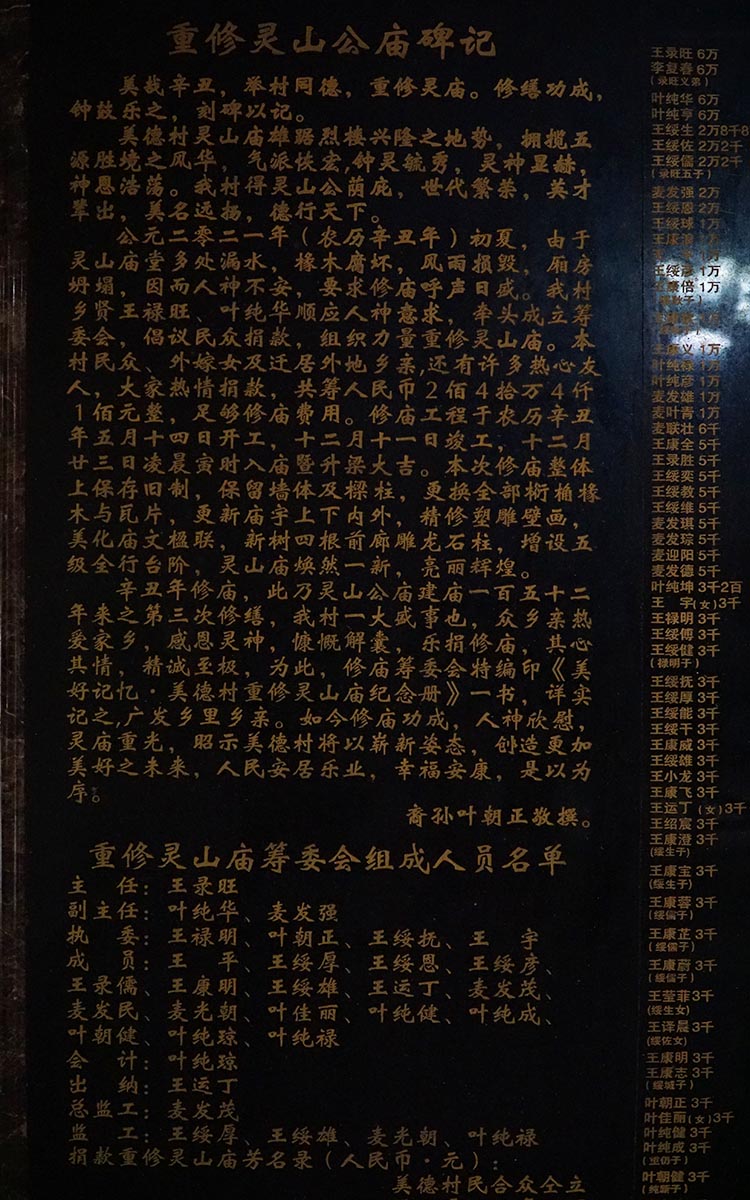 重修灵山公庙碑记
美哉辛丑，举村同德，重修灵庙。修缮功成，
钟鼓乐之，刻碑以记。
美德村灵山庙雄踞烈楼兴隆之地势，拥揽五
源胜境之风华，气派恢宏,钟灵毓秀，灵神显赫，
神恩浩荡。我村得灵山公荫庇，世代繁荣，英才
辈出，美名远扬，德行天下。
公元二零二一年（农历辛丑年）初夏，由于
灵山庙堂多处漏水，椽木腐坏，风雨损毁，厢房
坍塌，因而人神不安，要求修庙呼声日盛。我村
乡贤王禄旺、叶纯华顺应人神意求，牵头成立筹
委会，倡议民众捐款，组织力量重修灵山庙。本
村民众、外嫁女及迁居外地乡亲,还有许多热心友
人，大家热情捐款，共筹人民币2佰4拾万4仟
1佰元整，足够修庙费用。修庙工程于农历辛丑
年五月十四日开工，十二月十一日竣工，十二月
廿三日凌晨寅时入庙暨升梁大吉。本次修庙整体
上保存旧制，保留墙体及樑柱，更换全部桁桷椽
木与瓦片，更新庙宇上下内外，精修塑雕壁画，
美化庙文楹联，新树四根前廊雕龙石柱，增设五
级全行台阶，灵山庙焕然一新，亮丽辉煌。
辛丑年修庙，此乃灵山公庙建庙一百五十二
年来之第三次修缮，我村一大盛事也，众乡亲热
爱家乡，感恩灵神，慷慨解囊，乐捐修庙，其心
其情，精诚至极，为此，修庙筹委会特编印《美
好记忆·美德村重修灵山庙纪念册》一书，详实
记之,广发乡里乡亲。如今修庙功成，人神欣慰，
灵庙重光，昭示美德村将以崭新姿态，创造更加
美好之未来，人民安居乐业，幸福安康，是以为
序。
裔孙叶朝正敬撰。
重修灵山庙筹委会组成人员名单
主 任：王录旺
副主任：叶纯华、麦发强
执 委：王禄明、叶朝正、王绥抚、王 宇
成 员：王 平、王绥厚、王绥恩、王绥彦、
王录儒、王康明、王绥雄、王运丁、麦发茂、
麦发民、麦光朝、叶佳丽、叶纯健、叶纯成、
叶朝健、叶纯琼、叶纯禄
会 计：叶纯琼
出 纳：王运丁
总监工：麦发茂
监 工：王绥厚、王绥雄、麦光朝、叶纯禄
捐款重修灵山庙芳名录（人民币·元）：
美德村民合众仝立
王录旺 6万
李复春 6万
(录旺义弟)
叶纯华 6万
叶纯亨 6万
王绥生 2万8千8
王绥佐 2万2千
王绥儒 2万2千
(录旺五子)
麦发强 2万
王绥恩 2万
王绥球 1万
1万
1万
王绥彦 1万
康倍 1万
1万
王康义 1万
叶纯禄 1万
叶纯彦 1万
麦发雄 1万
麦叶青 1万
麦联壮 6千
王康全 5千
王录胜 5千
王绥奕 5千
王绥教 5千
王绥维 5千
麦发琪 5千
麦发琮 5千
麦迎阳 5千
麦发德 5千
叶纯坤 3千2百
王 宇(女)3千
王禄明 3千
王绥傅 3千
王绥健 3千
(禄明子)
王绥抚 3千
王绥厚 3千
王绥能 3千
王绥干 3千
王康威 3千
王绥雄 3千
王小龙 3千
王康飞 3千
王运丁(女)3千
王绍宸 3千
王康澄 3千
(绥生子)
王康宝 3千
(绥生子)
王康蓉 3千
(绥儒子)
王康芷 3千
(绥儒子)
王康蔚 3千
(绥儒子)
王莹菲 3千
(绥生女)
王译晨 3千
(绥佐女)
王康明 3千
王康志 3千
(绥城子)
叶朝正 3千
叶佳丽(女)3千
叶纯健 3千
叶纯成 3千
叶朝健 3千